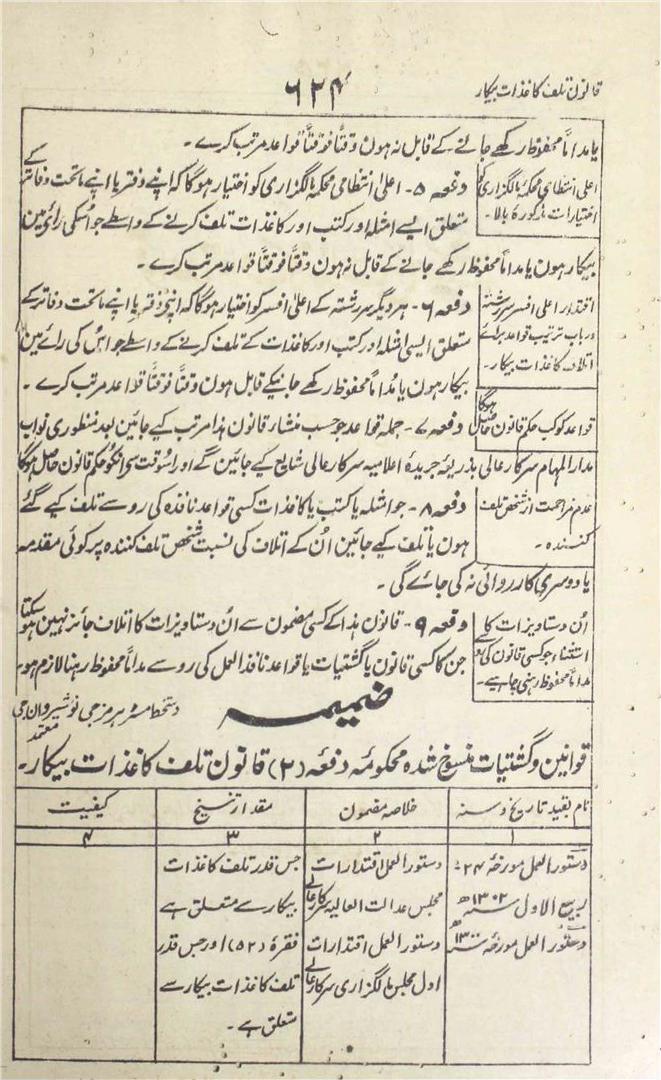 قانون تلف کاغذات بیکار
۶۲۴
یا مداماً محفوظ رکھے جانے کے قابل نہ ہون وقتاً فوقتاً قواعد مرتب کرے۔
اعلیٰ انتظامی محکمۂ مالگزاری کے
اختیارات مذکورۂ بالا۔
دفعہ ۵۔ اعلیٰ انتظامی محکمۂ مالگزاری کو اختیار ہوگا کہ اپنے دفتر یا اپنے ماتحت دفاتر کے
متعلق ایسے امثلہ اور کتب اور کاغذات تلف کرنے کے واسطے جو اُسکی رائے مین
بیکار ہون یا مداماً محفوظ رکھے جانے کے قابل نہ ہون وقتاً فوقتاً قواعد مرتب کرے۔
اقتدار اعلیٰ افسر سررشتہ
درباب ترتیب قواعد برائے
اتلاف کاغذات بیکار۔
دفعہ ۶۔ ہر دیگر سررشتہ کے اعلیٰ افسر کو اختیار ہوگا کہ اپنے دفتر یا اپنے ماتحت دفاتر کے
متعلق ایسی امثلہ اور کتب اور کاغذات کے تلف کرنے کے واسطے جو اُس کی رائے مین
بیکار ہون یا مداماً محفوظ رکھے جانیکے قابل ہون وقتاً فوقتاً قواعد مرتب کرے۔
قواعد کو کب حکم قانون حاصل ہوگا
دفعہ ۷۔ جملہ قواعد جو حسب منشاء قانون ہذا مرتب کیے جائین بعد منظوری نواب
مدار المہام سرکار عالی بذریعۂ جریدۂ اعلامیہ سرکار عالی شایع کیے جائین گے اور اسوقت سے انکو حکم قانون حاصل ہوگا
عدم مزاحمت از شخص تلف
کنندہ۔
دفعہ ۸۔ جو امثلہ یا کتب یا کاغذات کسی قواعد نافذہ کی رو سے تلف کیے گئے
ہون یا تلف کیے جائین اُن کے اتلاف کی نسبت شخص تلف کنندہ پر کوئی مقدمہ
یا دوسری کارروائی نہ کی جائے گی۔
اُن دستاویزات کا
استثناء جو کسی قانون کی رو سے
مداماً محفوظ رہنی چاہیے۔
دفعہ ۹۔ قانون ہذا کے کسی مضمون سے اُن دستاویزات کا اتلاف جائز نہین ہوسکتا
جن کا کسی قانون یا گشتیات یا قواعد نافذ العمل کی رو سے مداماً محفوظ رہنا لازم ہو۔
دستخط مسٹر ہرمزجی نوشیروان جی
معتمد
ضمیمہ
قوانین و گشتیات منسوخ شدہ محکومۂ دفعہ (۲) قانون تلف کاغذات بیکار۔
نام بقید تاریخ و سنہ خلاصہ مضمون مقدار تنسیخ کیفیت
۱ ۲ ۳ ۴
دستور العمل مورخۂ ۲۴ دستور العمل اقتدارات جس قدر تلف کاغذات
ربیع الاول سنہ ۱۳۰۲ھ مجلس عدالت العالیہ سرکار عالی بیکار سے متعلق ہے
دستور العمل مورخۂ دستور العمل اقتدارات فقرہ (۵۲) اور جس قدر
اول مجلس مالگزاری سرکار عالی تلف کاغذات بیکار سے
متعلق ہے۔